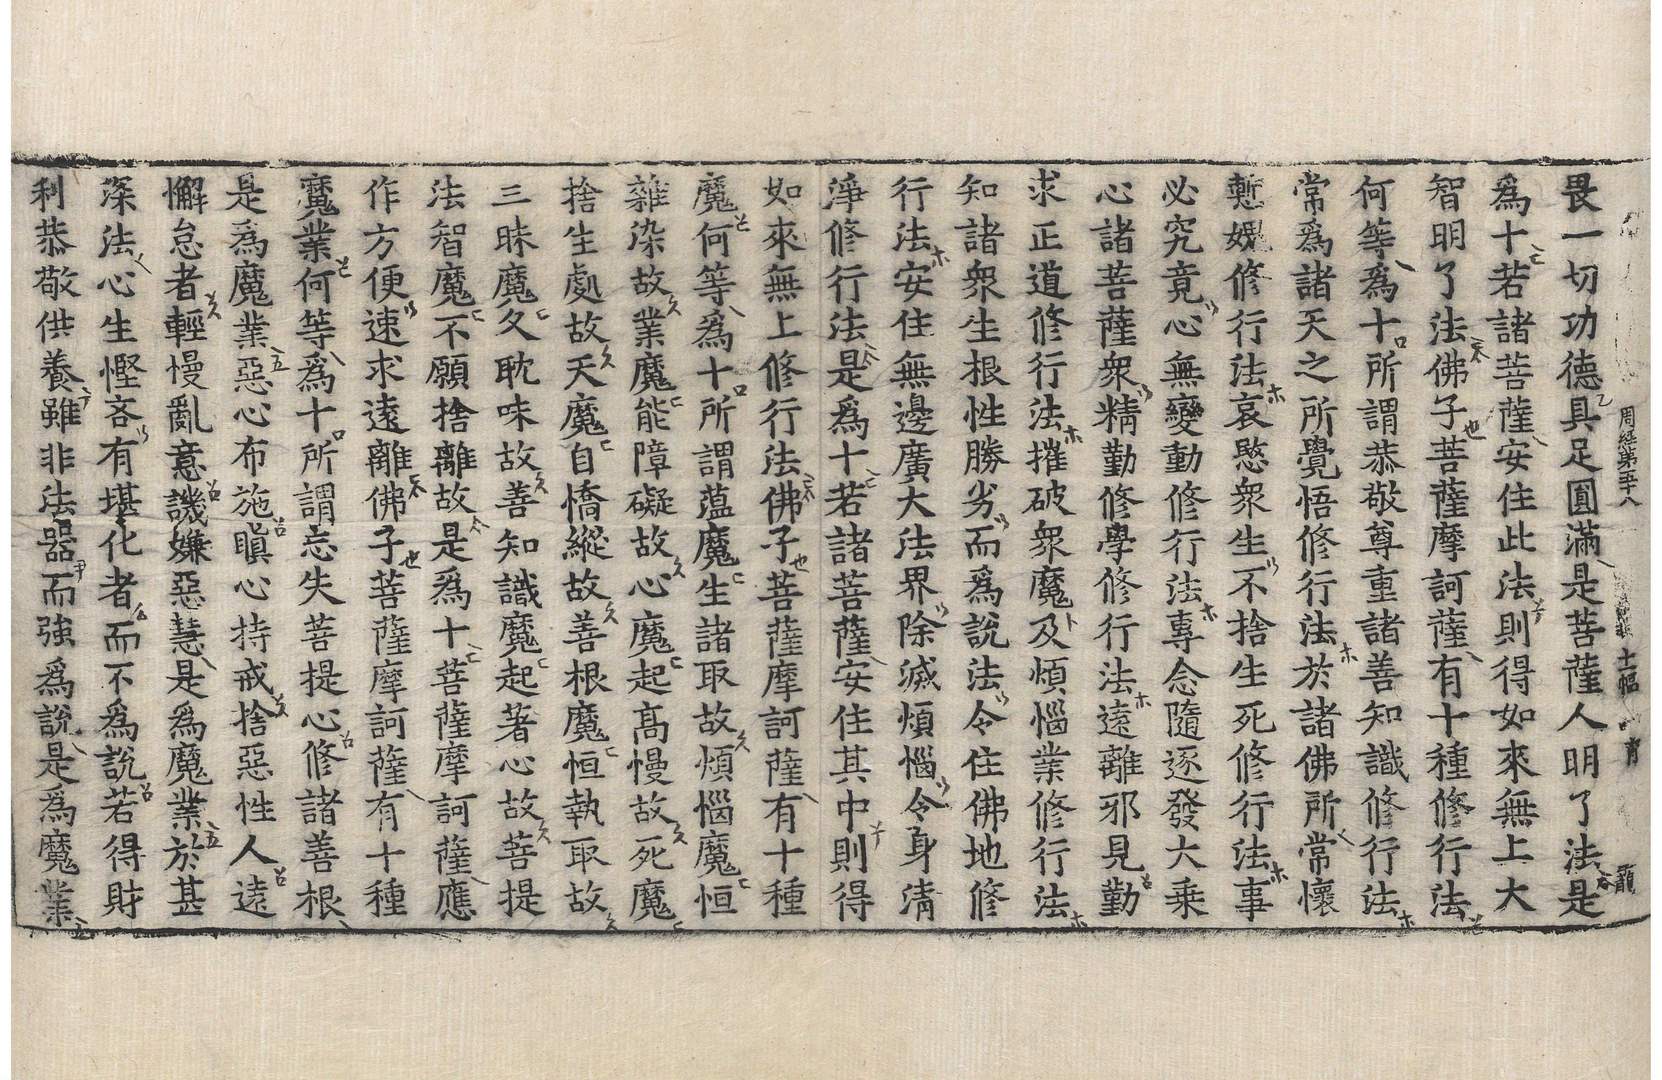 畏一切功德具足圓滿是菩薩人明了法是
爲十若諸菩薩安住此法則得如來無上大
智明了法佛子菩薩摩訶薩有十種修行法
何等爲十所謂恭敬尊重諸善知識修行法
常爲諸天之所覺悟修行法於諸佛所常懷
慙媿修行法哀愍衆生不捨生死修行法事
必究竟心無變動修行法專念隨逐發大乗
心諸菩薩衆精勤修學修行法遠離邪見勤
求正道修行法摧破衆魔及煩惱業修行法
知諸衆生根性勝劣而爲說法令住佛地修
行法安住無邊廣大法界除滅煩惱令身淸
淨修行法是爲十若諸菩薩安住其中則得
如來無上修行法佛子菩薩摩訶薩有十種
魔何等爲十所謂蘊魔生諸取故煩惱魔恒
雜染故業魔能障礙故心魔起高慢故死魔
捨生處故天魔自憍縱故善根魔恒執取故
三昧魔久耽味故善知識魔起著心故菩提
法智魔不願捨離故是爲十菩薩摩訶薩應
作方便速求遠離佛子菩薩摩訶薩有十種
魔業何等爲十所謂忘失菩提心修諸善根
是爲魔業惡心布施瞋心持戒捨惡性人遠
懈怠者輕慢亂意譏嫌惡慧是爲魔業於甚
深法心生慳吝有堪化者而不爲說若得財
利恭敬供養雖非法器而強爲說是爲魔業